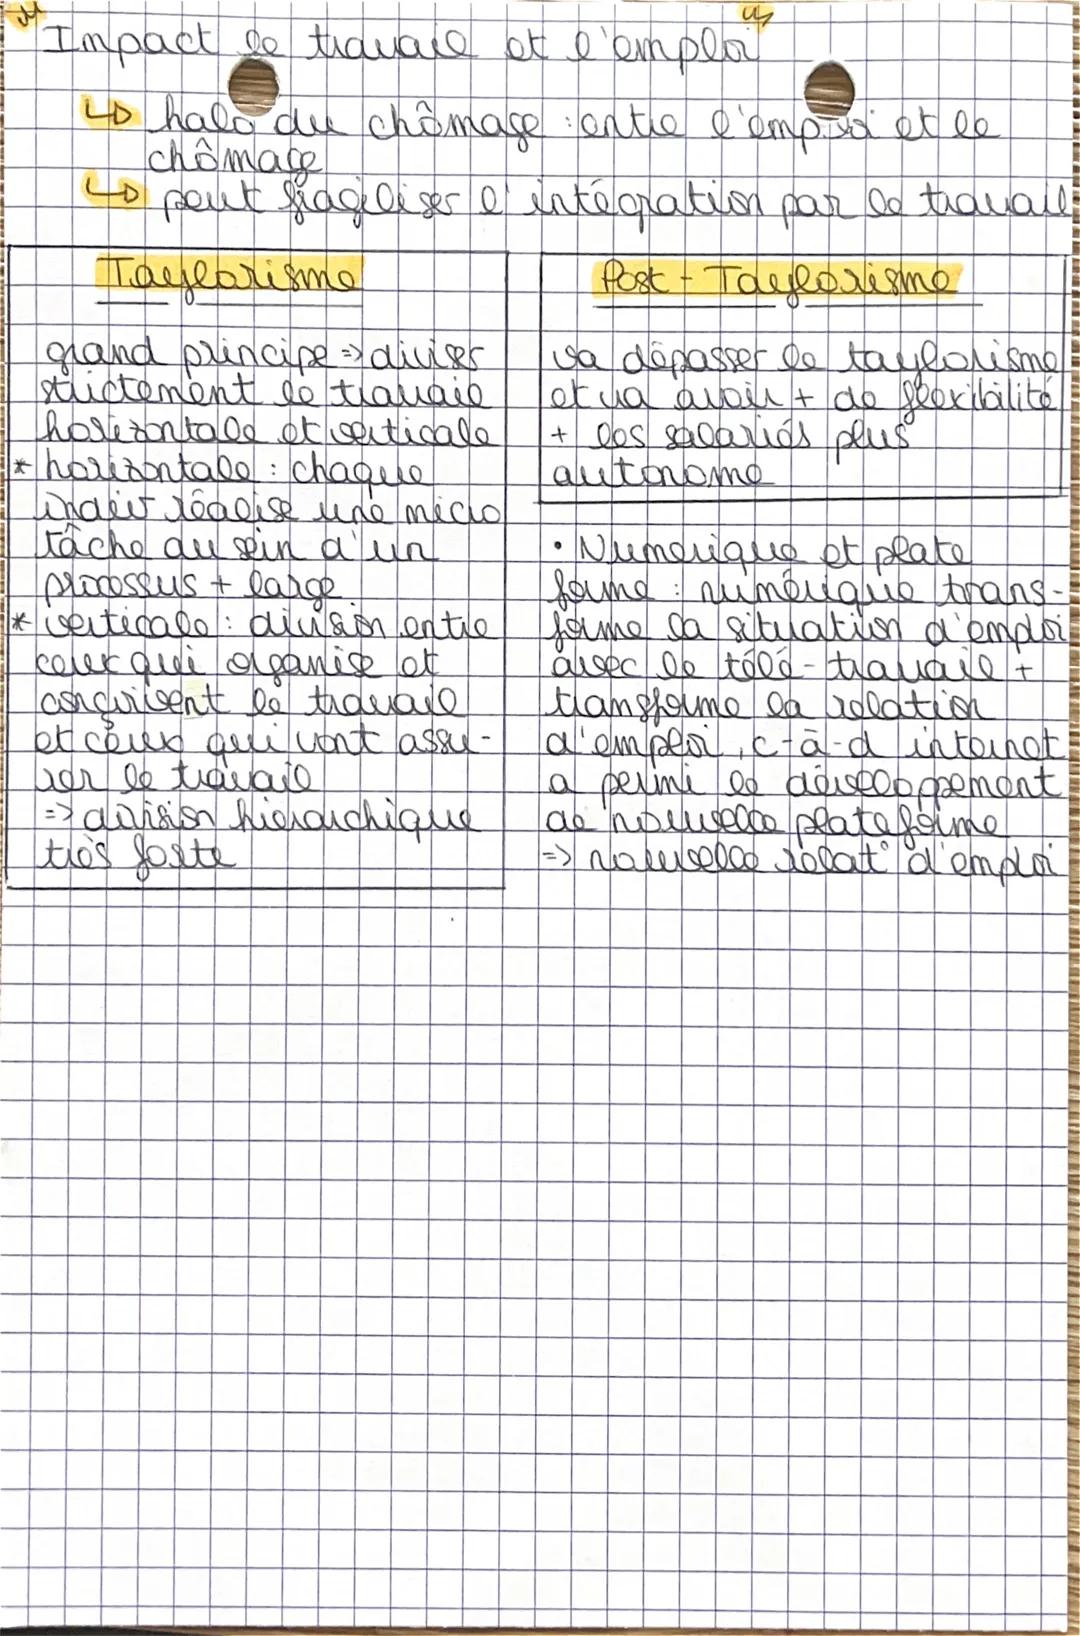 "Impact le travail et l'emploi"
↳ halo du chômage : entre l'emploi et le
chômage
↳ peut fragiliser l'intégration par le travail
Taylorisme
grand principe => diviser
strictement le travail
horizontale et verticale
* horizontale : chaque
indiv réalise une micro
tâche au sein d'un
processus + large
* verticale : division entre
ceux qui organise et
conçoivent le travail
et ceux qui vont assu-
rer le travail
=> division hiérarchique
très forte
Post - Taylorisme
va dépasser le taylorisme
et va avoir + de flexibilité
+ les salariés plus
autonome
• Numérique et plate
forme : numérique trans-
forme la situation d'emploi
avec le télé-travail +
transforme la relation
d'emploi, c-à-d internet
a permi le développement
de nouvelle plateforme
=> nouvelle relat° d'emploi